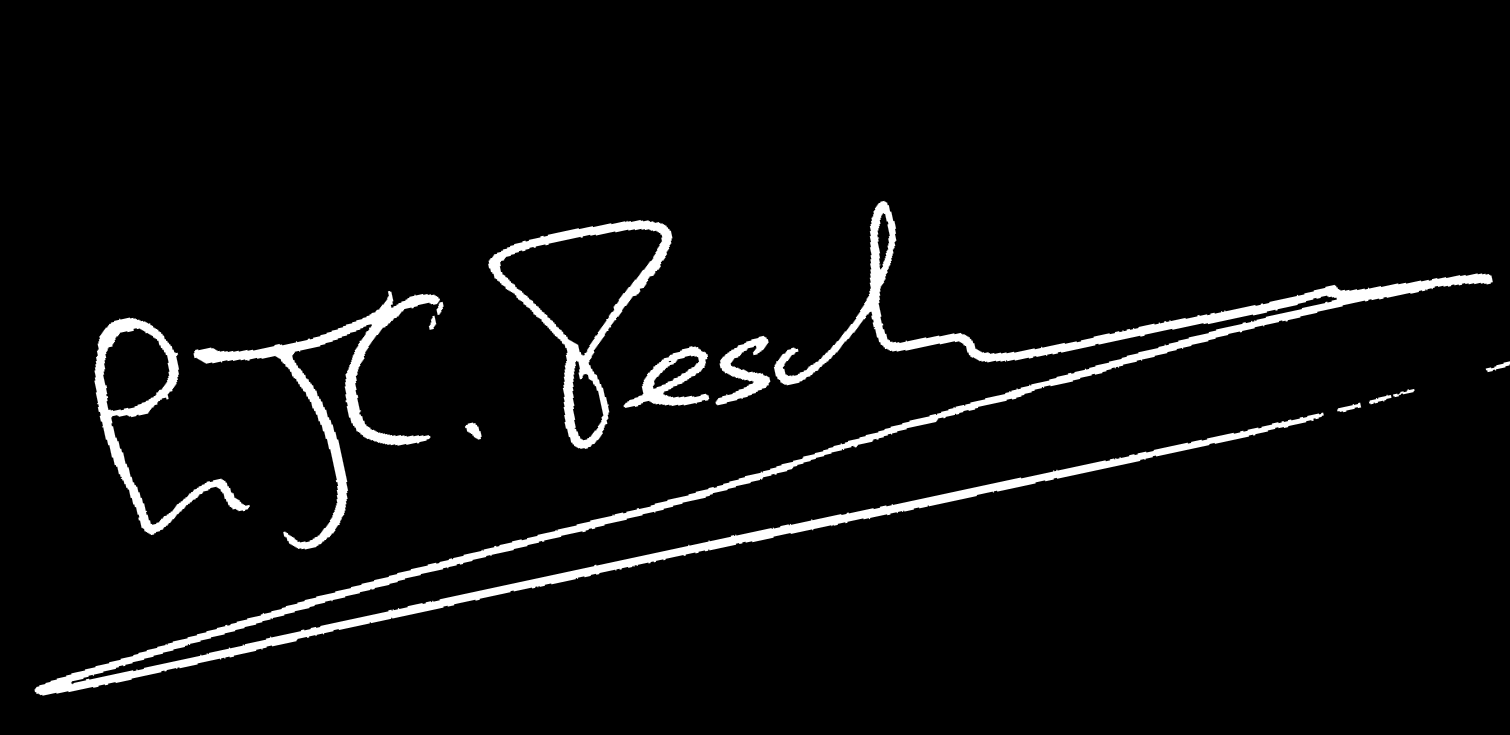 RJC. Pesch